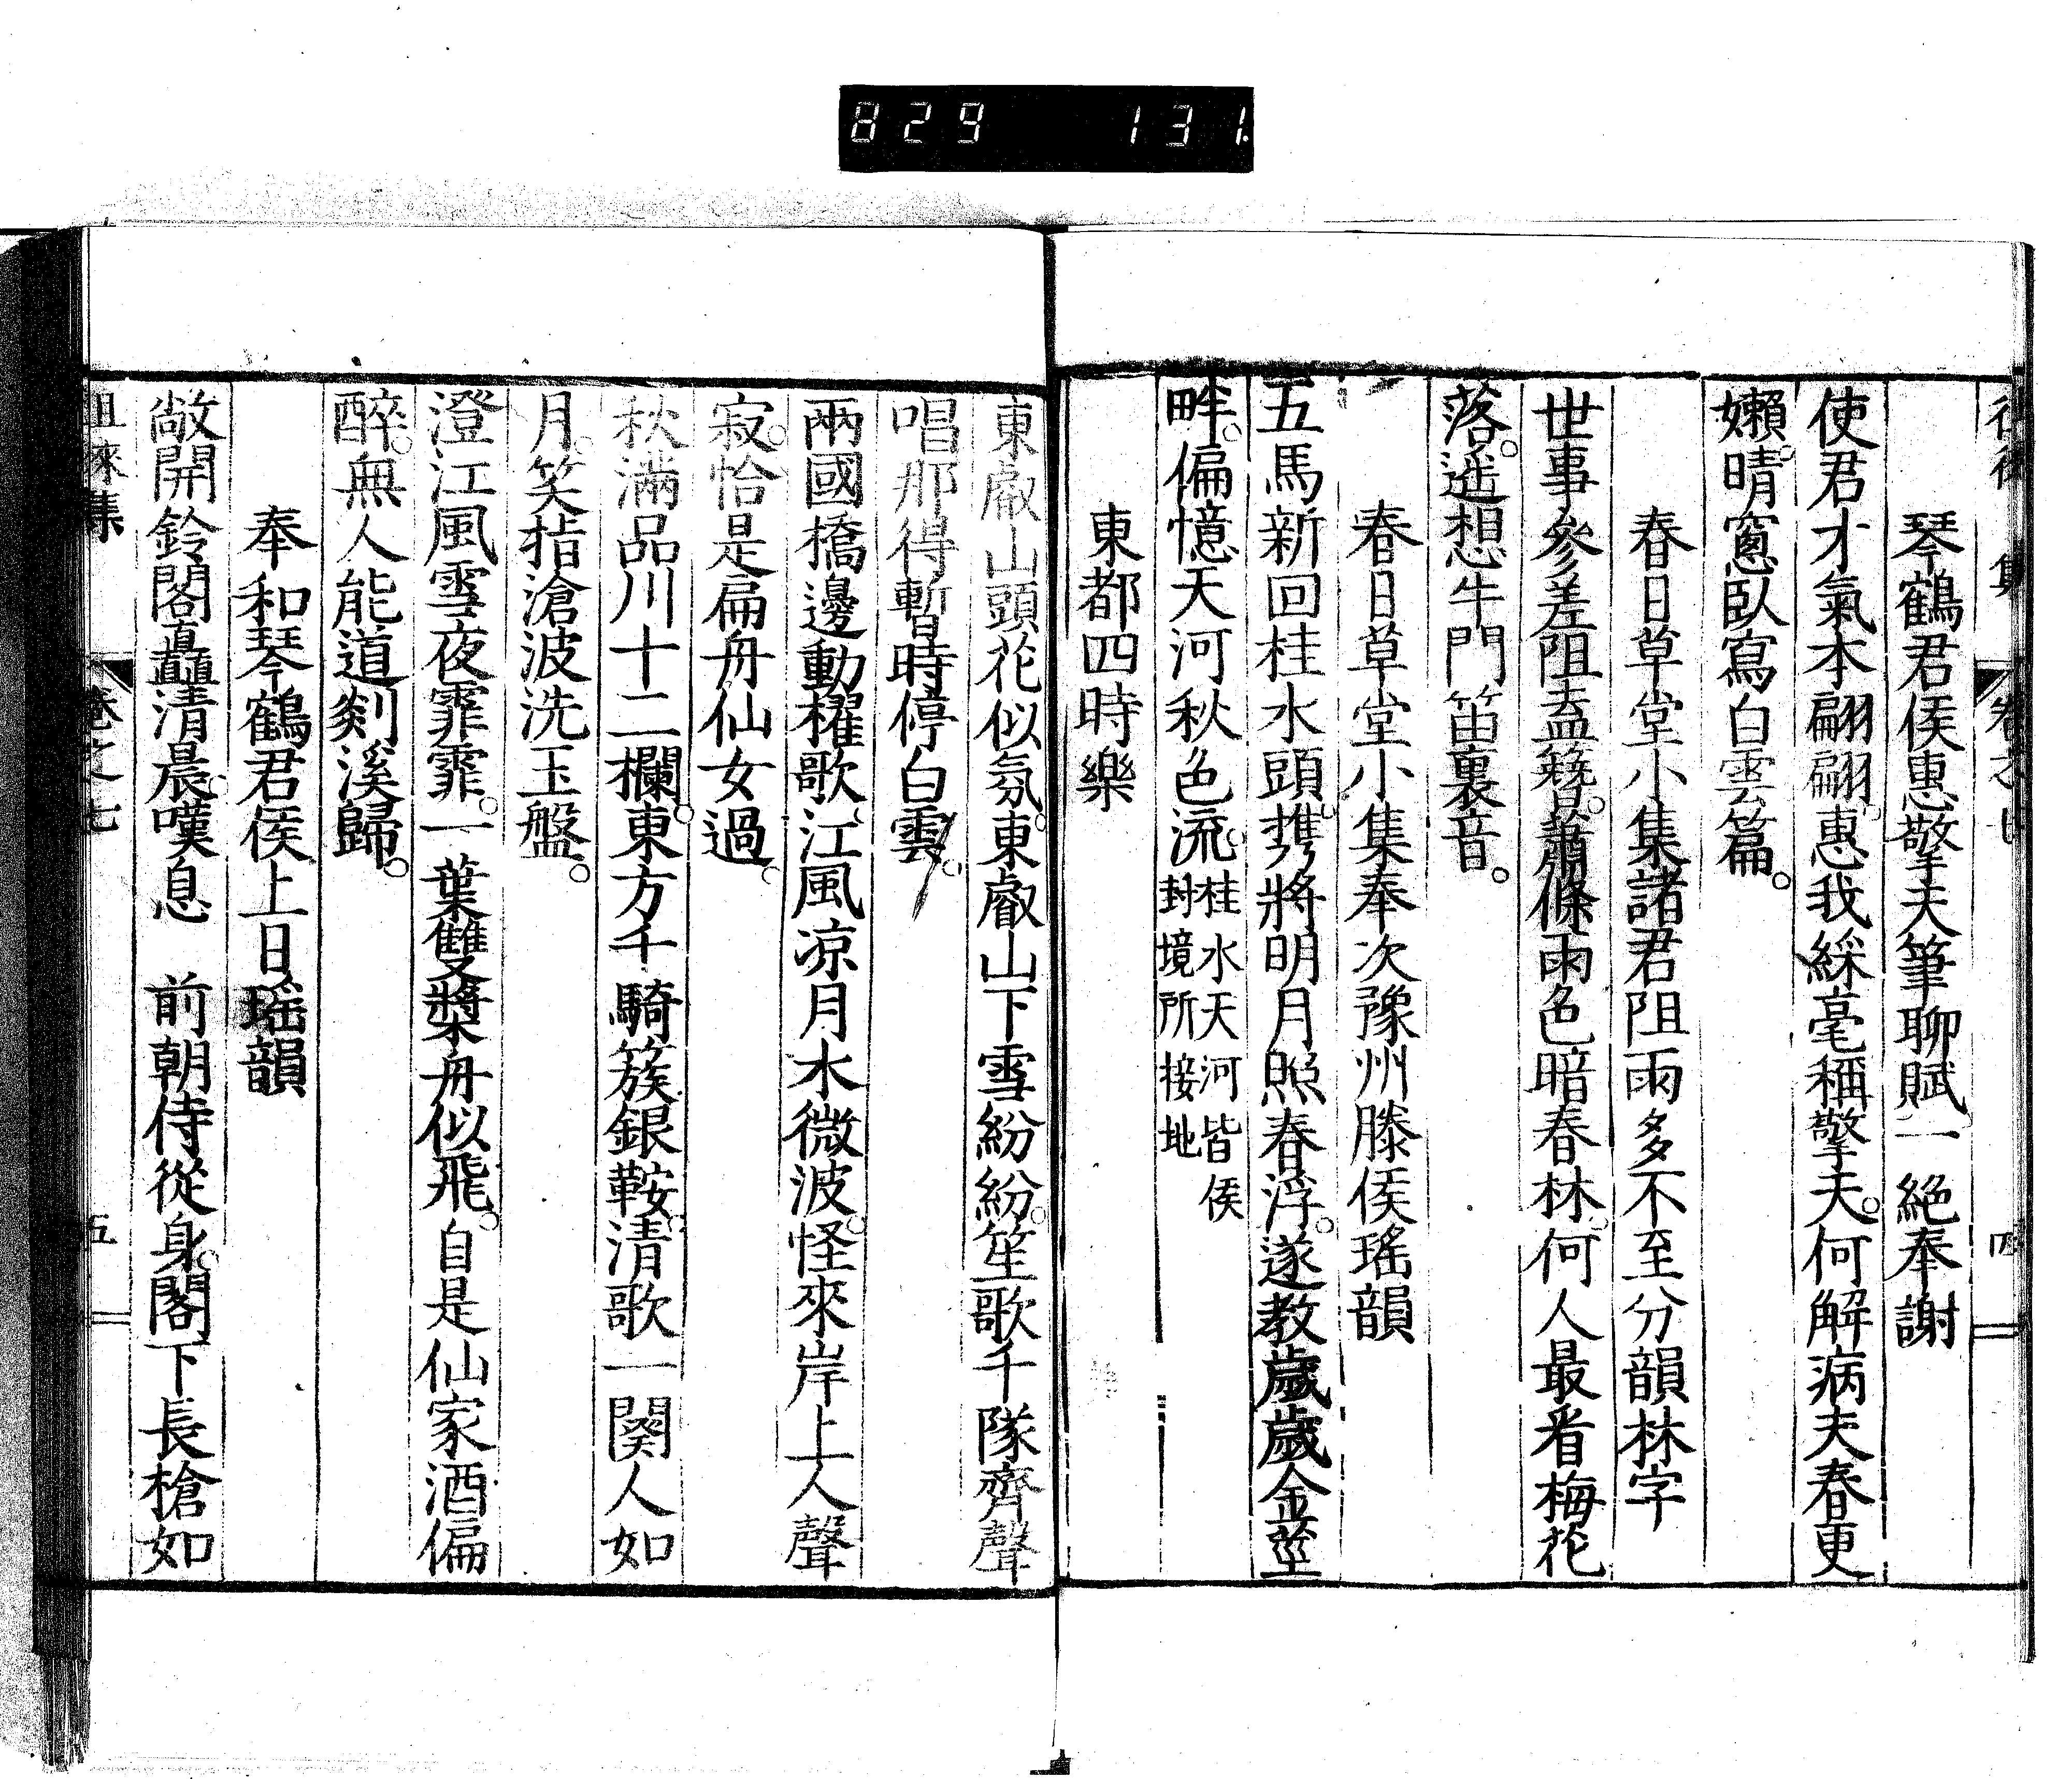 829 131.
琴鶴君侯惠擎天筆聊賦一絕奉謝
使君才氣本翩翩。惠我綵毫稱擎天。何解病夫春更
嬾。晴窻臥寫白雲篇。
春日草堂小集諸君阻雨多不至分韻林字
世事參差阻盍簪。蕭條雨色暗春林。何人最看梅花
落。遥想牛門笛裏音。
春日草堂小集奉次豫州滕侯瑤韻
五馬新回桂水頭。携將明月照春浮。遂教歲歲金莖
畔。偏憶天河秋色流。桂水天河皆侯封境所接地
東都四時樂
東叡山頭花似氛。東叡山下雪紛紛。笙歌千隊齊聲
唱。那得暫時停白雲。
兩國橋邊動櫂歌。江風凉月水微波。怪來岸上人聲
寂。恰是扁舟仙女過。
秋滿品川十二欄。東方千騎簇銀鞍。清歌一闋人如
月。笑指滄波洗玉盤。
澄江風雪夜霏霏。一葉雙槳舟似飛。自是仙家酒偏
醉。無人能道剡溪歸。
奉和琴鶴君侯上日瑤韻
敞開鈴閣矗清晨。嘆息 前朝侍從身。閣下長槍如
徂徠集 卷之七 五